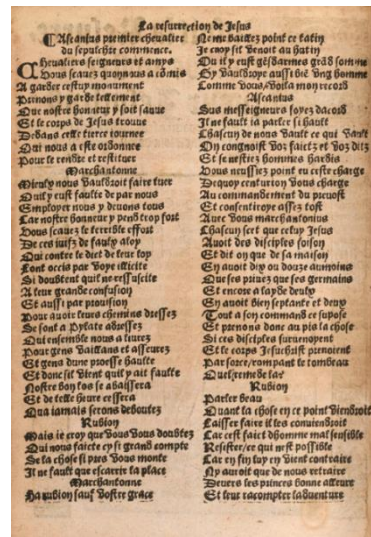 La resurrection de Jesus
Ascanius premier chevalier
du sepulchre commence.
Chevaliers seigneurs et amys
Vous scavez quon nous a cõmis
A garder cestuy monument
Prenons y garde tellement
Que nostre honneur y soit sauve
Et se corps de Jesus trouve
Dedans ceste tierce iournee
Qui nous a este ordonnee
Pour le rendre et restituer
Marchantonne
Mieulx nous vauldroit faire tuer
Quil y eust faulte de par nous
Employer nous y devons tous
Car nostre honneur y pend trop fort
Vous scavez le terrible effort
De ces iuifz de faulx aloy
Qui contre le dict de leur loy
Sont occis par voye illicite
Si doubtent quil ne ressuscite
A leur grande confusion
Et aussi par provision
Pour avoir leurs chemins dressez
Se sont a Pylate adressez
Qui ensemble nous a livrez
Pour gens vaillans et asseurez
Et gens dune proesse haulte
Et donc sil vient quil y ait faulte
Nostre bon los se abaissera
Et de ceste heure cessera
Qua iamais serons deboutez
Rubion
Mais ie croy que vous vous doubtez
Qui nous faicte cy si grand compte
Se la chose si pres vous monte
Il ne fault que escarrir la place
Marchantonne
Ha rubion sauf vostre grace
Ne me baillez point ce latin
Je croy sil venoit au hutin
Ou il y eust gēsdarmes grād somme
Sy vauldroye aussi biē vng homme
Comme vous, voila mon recors
Ascanius
Sus messeigneurs soyez dacord
Il ne fault ia parler si hault
Chascun de nous vault ce qui vault
On congnoist voz faictz et voz ditz
Et se nestiez hommes hardis
Vous neussiez point eu ceste charge
Dequoy centurion vous charge
Au commandement du prevost
Et consentiroye assez tost
Avec vous marchantonius
Chascun scet que celuy Jesus
Avoit des disciples foison
Et dit on que de sa maison
En avoit dix ou douze aumoins
Que ses privez que ses germains
Et encore a layde deulx
En avoit bien septante et deux
Tout a son command ce supose
Et prenons donc au pis la chose
Si ces disciples survenoyent
Et le corps Jesuchrist prenoient
Par force, rompant le tombeau
Quel remede la?
Rubion
Parler beau
Quant la chose en ce point viendroit
Laisser faire il les conviendroit
Car cest faict dhomme mal sensible
Resister, ce qui nest possible
Car en fin luy en vient contraire
Ny auroit que de nous retraire
Devers les princes donne alleure
Et leur racompter ladventure